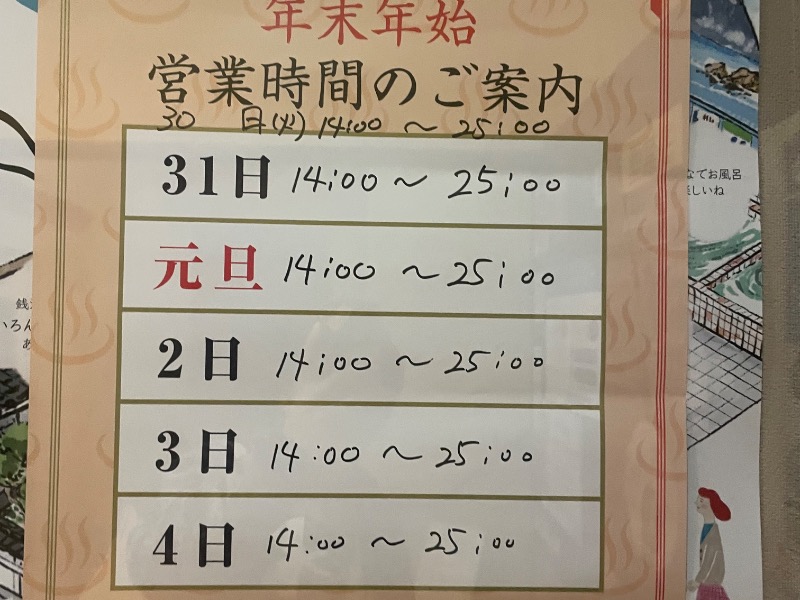 年末年始
営業時間のご案内
30日(火) 14:00 ~ 25:00
31日 14:00 ~ 25:00
元旦 14:00 ~ 25:00
2日 14:00 ~ 25:00
3日 14:00 ~ 25:00
4日 14:00 ~ 25:00
なてお風呂
しいね
銭
いろん
あ